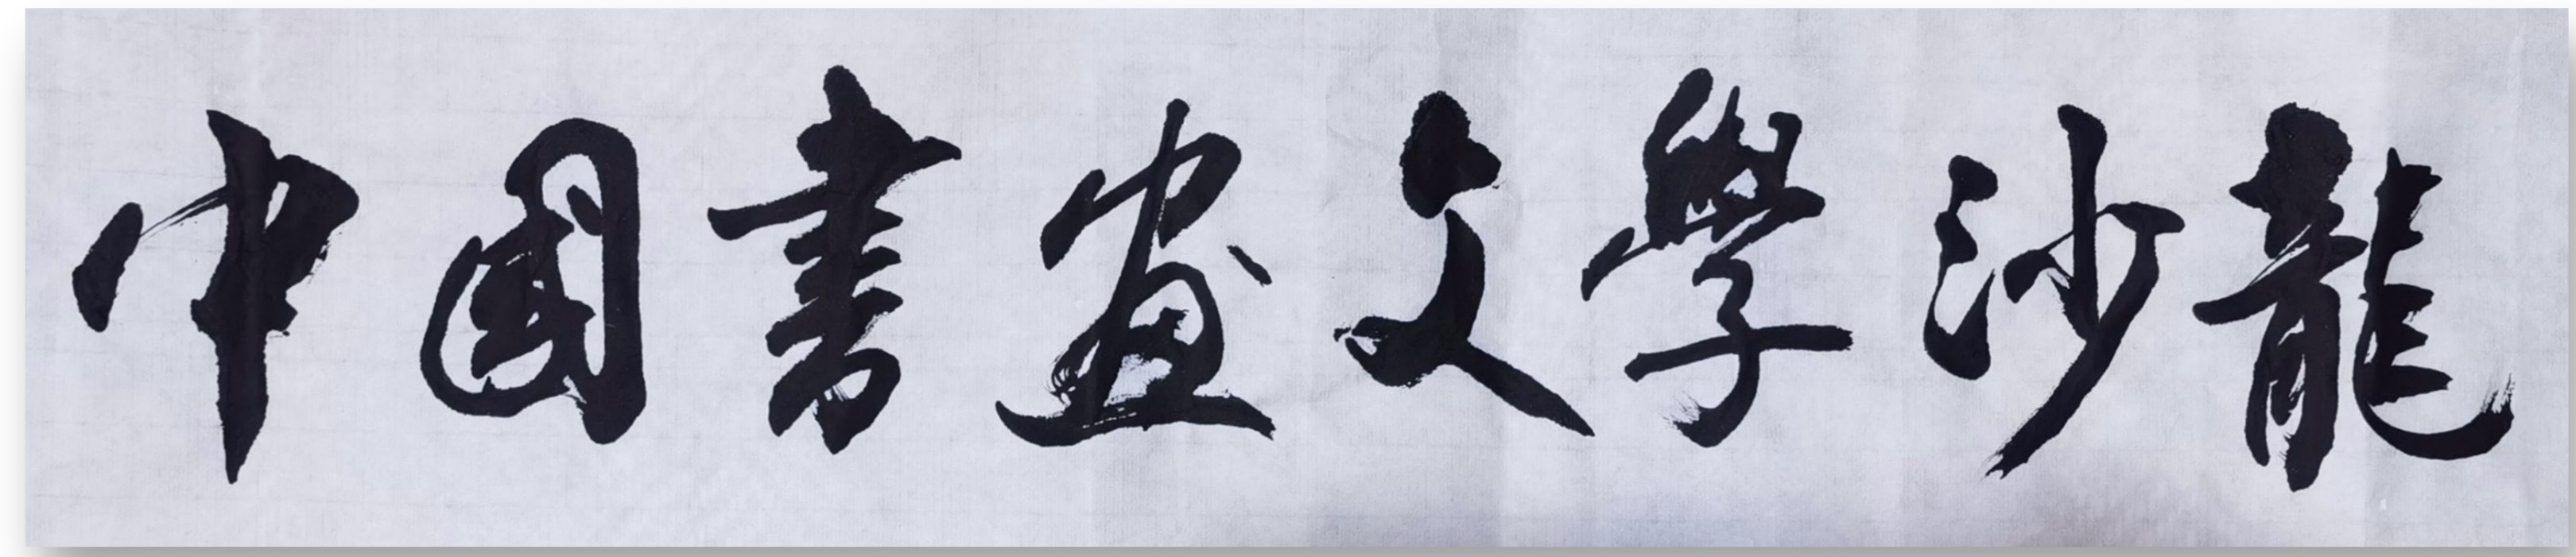 中國書畫文學沙龍